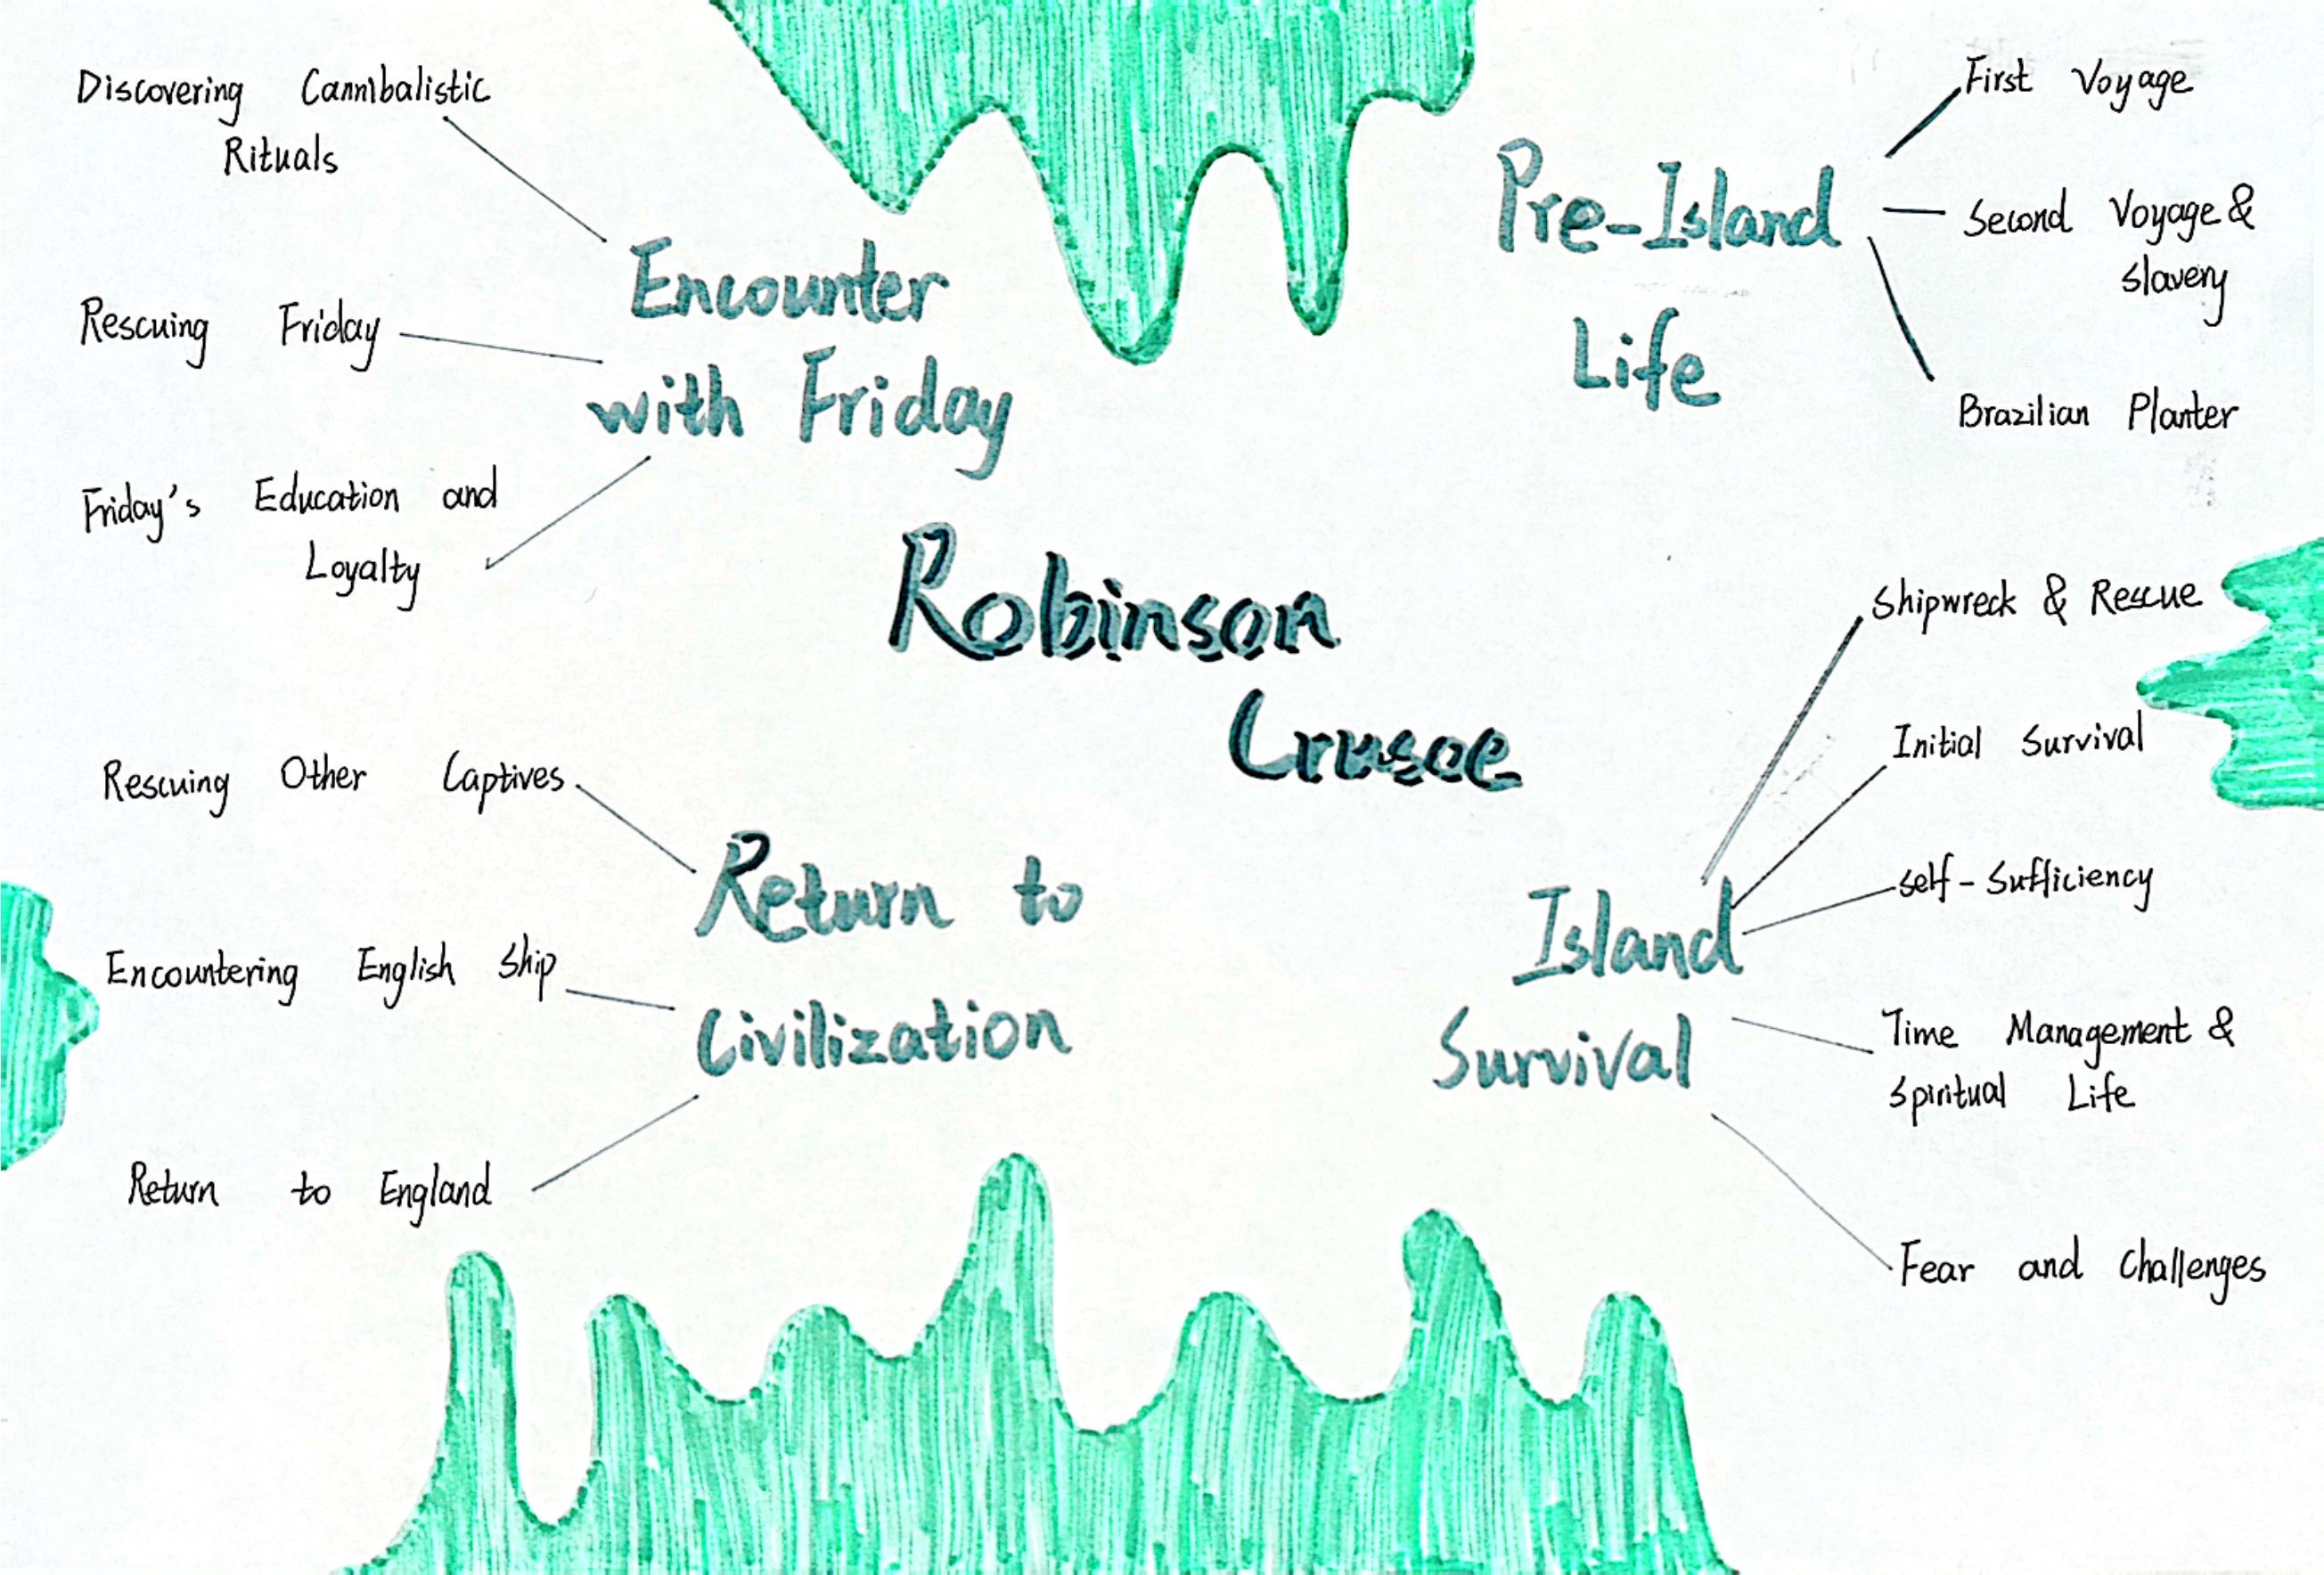 Robinson
Crusoe
Pre-Island
Life
First Voyage
Second Voyage &
Slavery
Brazilian Planter
Island
Survival
Shipwreck & Rescue
Initial Survival
Self-Sufficiency
Time Management &
Spiritual Life
Fear and Challenges
Encounter
with Friday
Discovering Cannibalistic
Rituals
Rescuing Friday
Friday's Education and
Loyalty
Return to
Civilization
Rescuing Other Captives
Encountering English Ship
Return to England